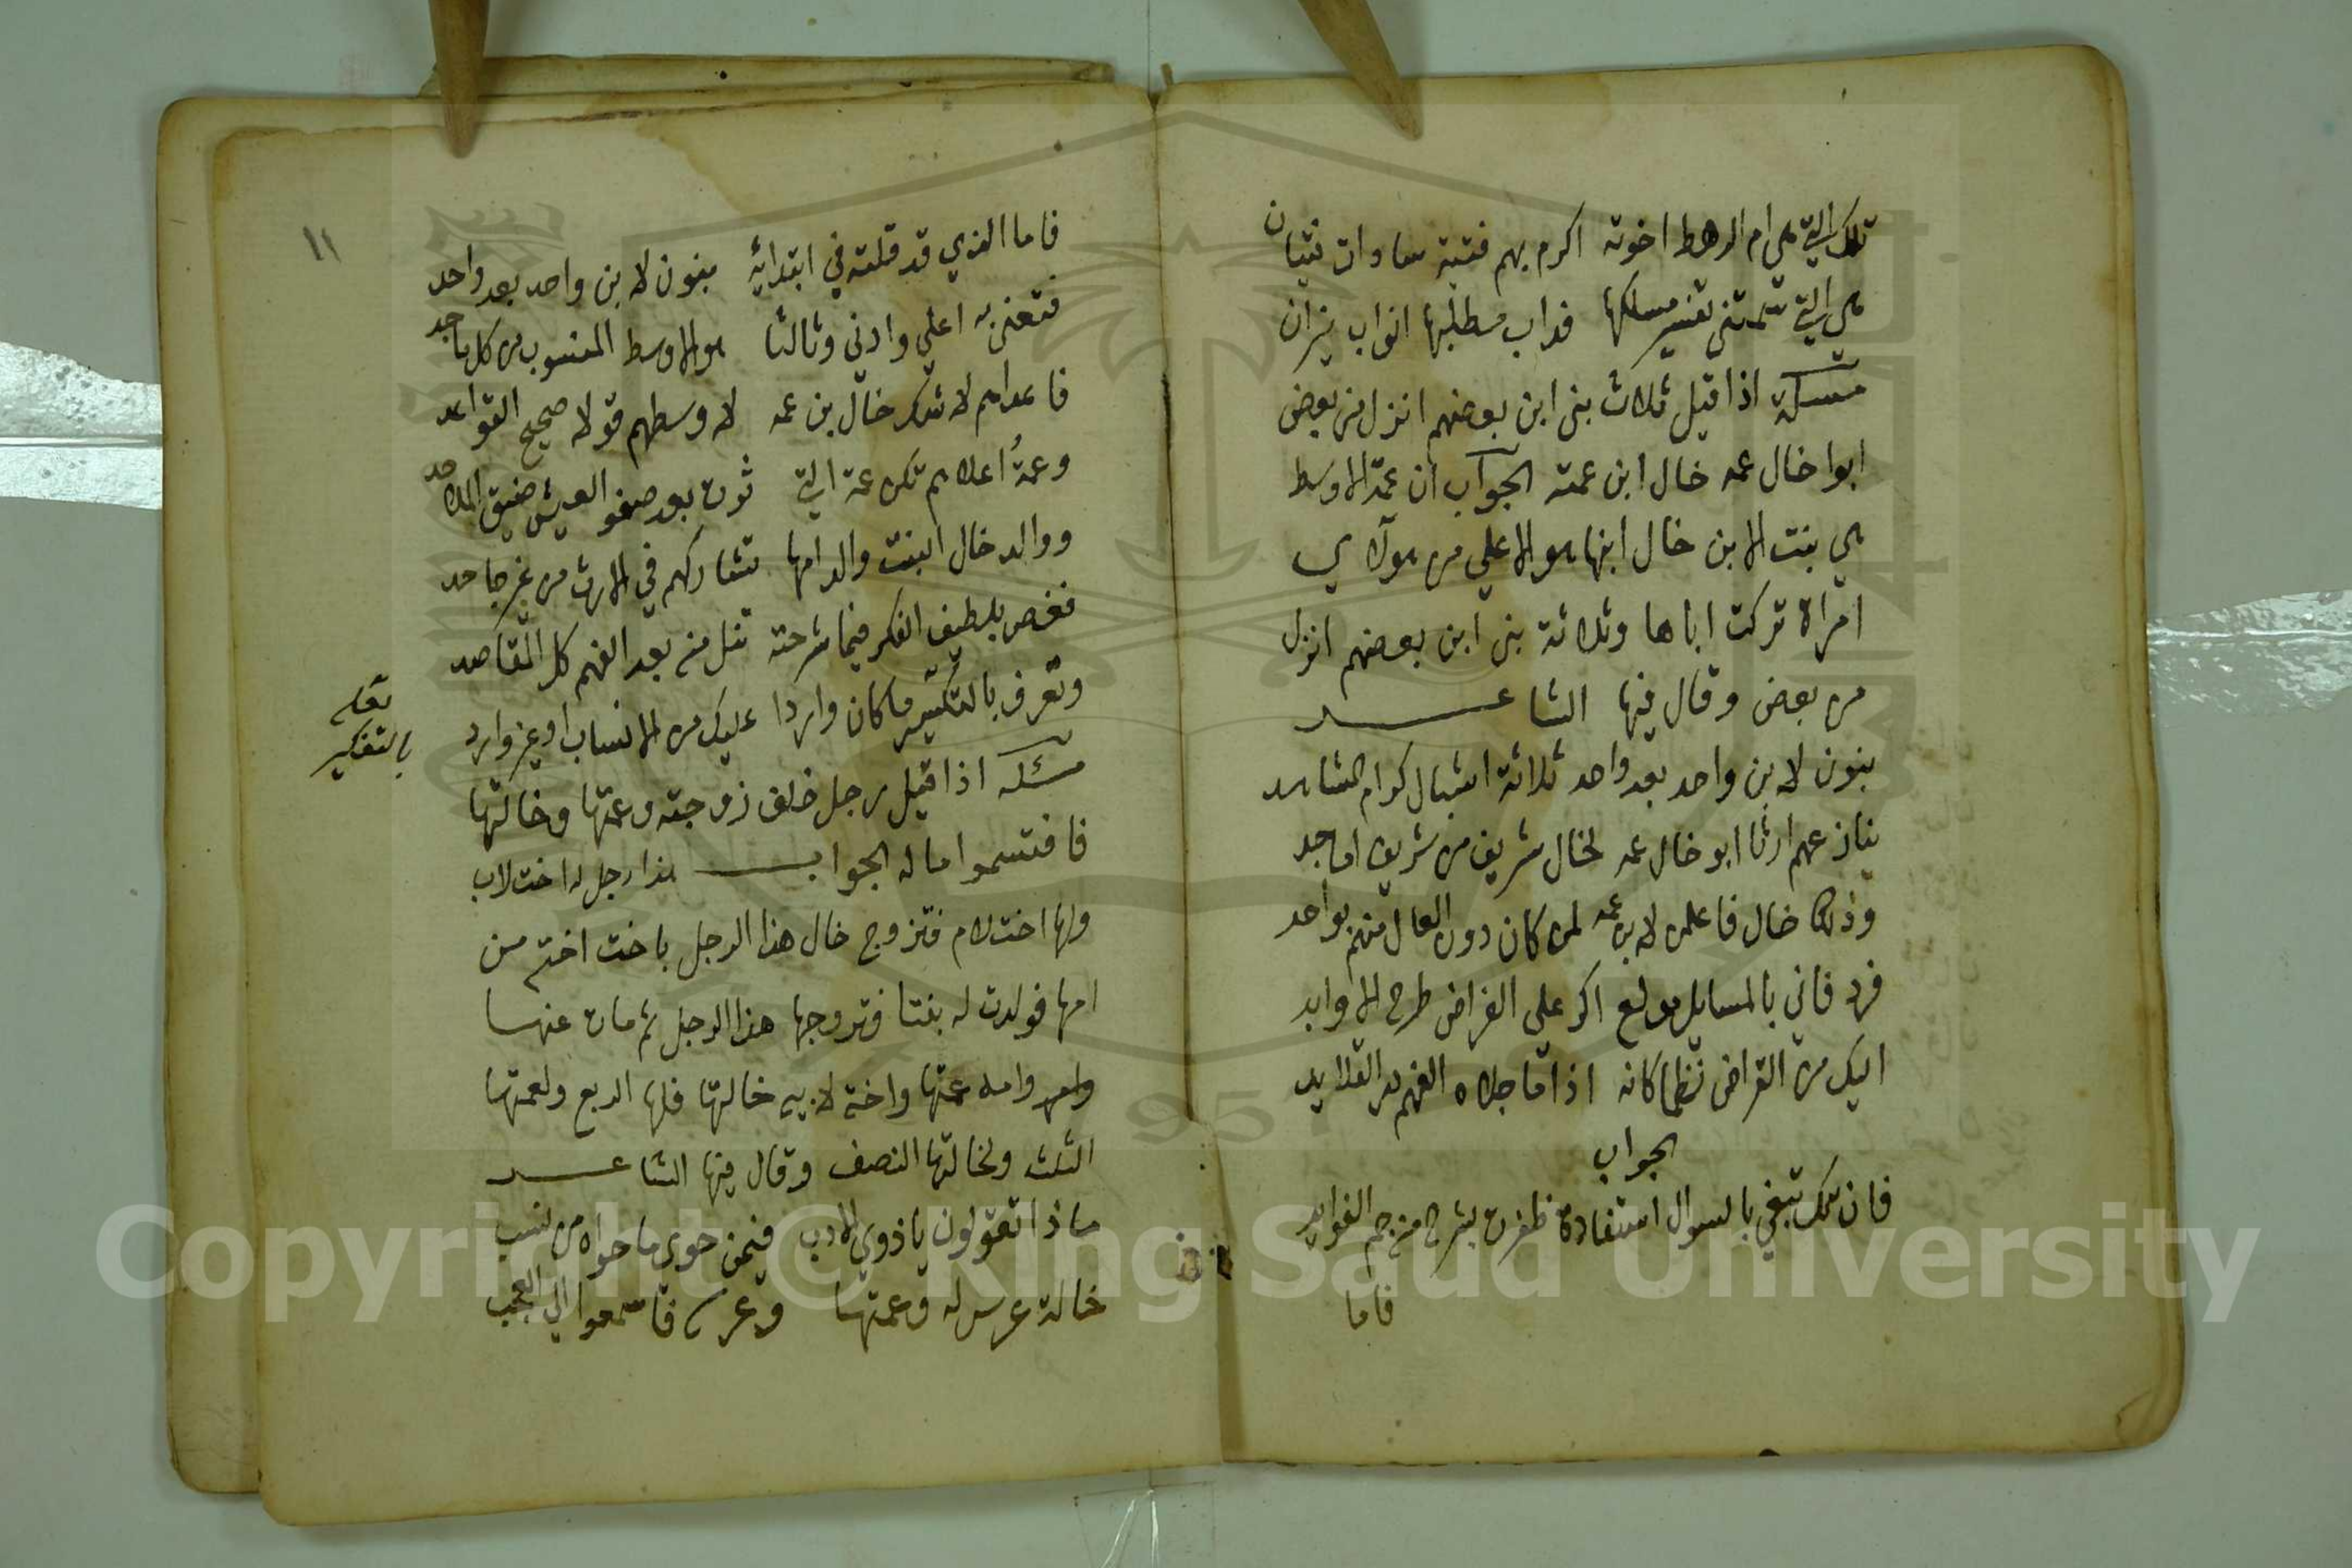 تلك التي هي ام الرهط اخوته اكرم بهم فتية سادات فتيان
هي التي تفسير مسلكها فداب مطلبها اثواب نيران
مسئلة اذا قيل ثلاث بني ابن بعضهم انزل من بعض
ابوا خال عمه خال ابن عمته الجواب ان عمة الاوسط
هي بنت الابن خال ابنها هو الاعلي من هولاي
امراة تركت اباها وثلاثة بني ابن بعضهم انزل
من بعض وقال فيها الشاعر
بنون لابن واحد بعد واحد ثلاثة اشبال كرام المشاهد
ينازعهم ارثا ابو خال عمه لخال شريف من شريف اماجد
وذلك خال فاعلمن لابن عمه لمن كان دون العال منهم بواحد
فرد فاني بالمسايل مولع اكر علي الفراض طرح الاوابد
اليك من القراض نظما كانه اذا ما جلاه الفهم در القلايد
الجواب
فان تك تبغي بالسوال استفادة ظفرت بشرح منه جم الفوايد
فاما
١١
فاما الذي قد قلته في ابتدايه بنون لابن واحد بعد واحد
فتعني به اعلي وادني وثالثا هو الاوسط المنسوب من كل ماجد
فاعداهم لا شك خال بن عمه لاوسطهم قولا صحيح القواعد
وعمة اعلاهم تكن عمة التي ثوت بعد صفو العيش ضيق الملاحد
ووالد خال البنت والد امها تشاركهم في الارث من غير جاحد
فغص بلطيف الفكر فيما شرحته تنل منه بعد الفهم كل المقاصد
وتعرف بالتكثير ما كان واردا عليك من الانساب او غير وارد
لعله
بالتفكير
مسئلة اذا قيل رجل خلف زوجته وعمتها وخالتها
فاقتسموا ماله الجواب هذا رجل له اخت لاب
ولها اخت لام فتزوج خال هذا الرجل باخت اخته من
امها فولدت له بنتا فتزوجها هذا الرجل ثم مات عنها
وامه عمتها واخته لابيه خالتها فلها الربع ولعمتها
الثلث ولخالتها النصف وقال فيها الشاعر
ماذا تقولون يا ذوي الادب فيمن حوي ما حواه من نسب
خالة عرس له وعمتها وعرسه فاسمعوا الي العجب
Copyright © King Saud University